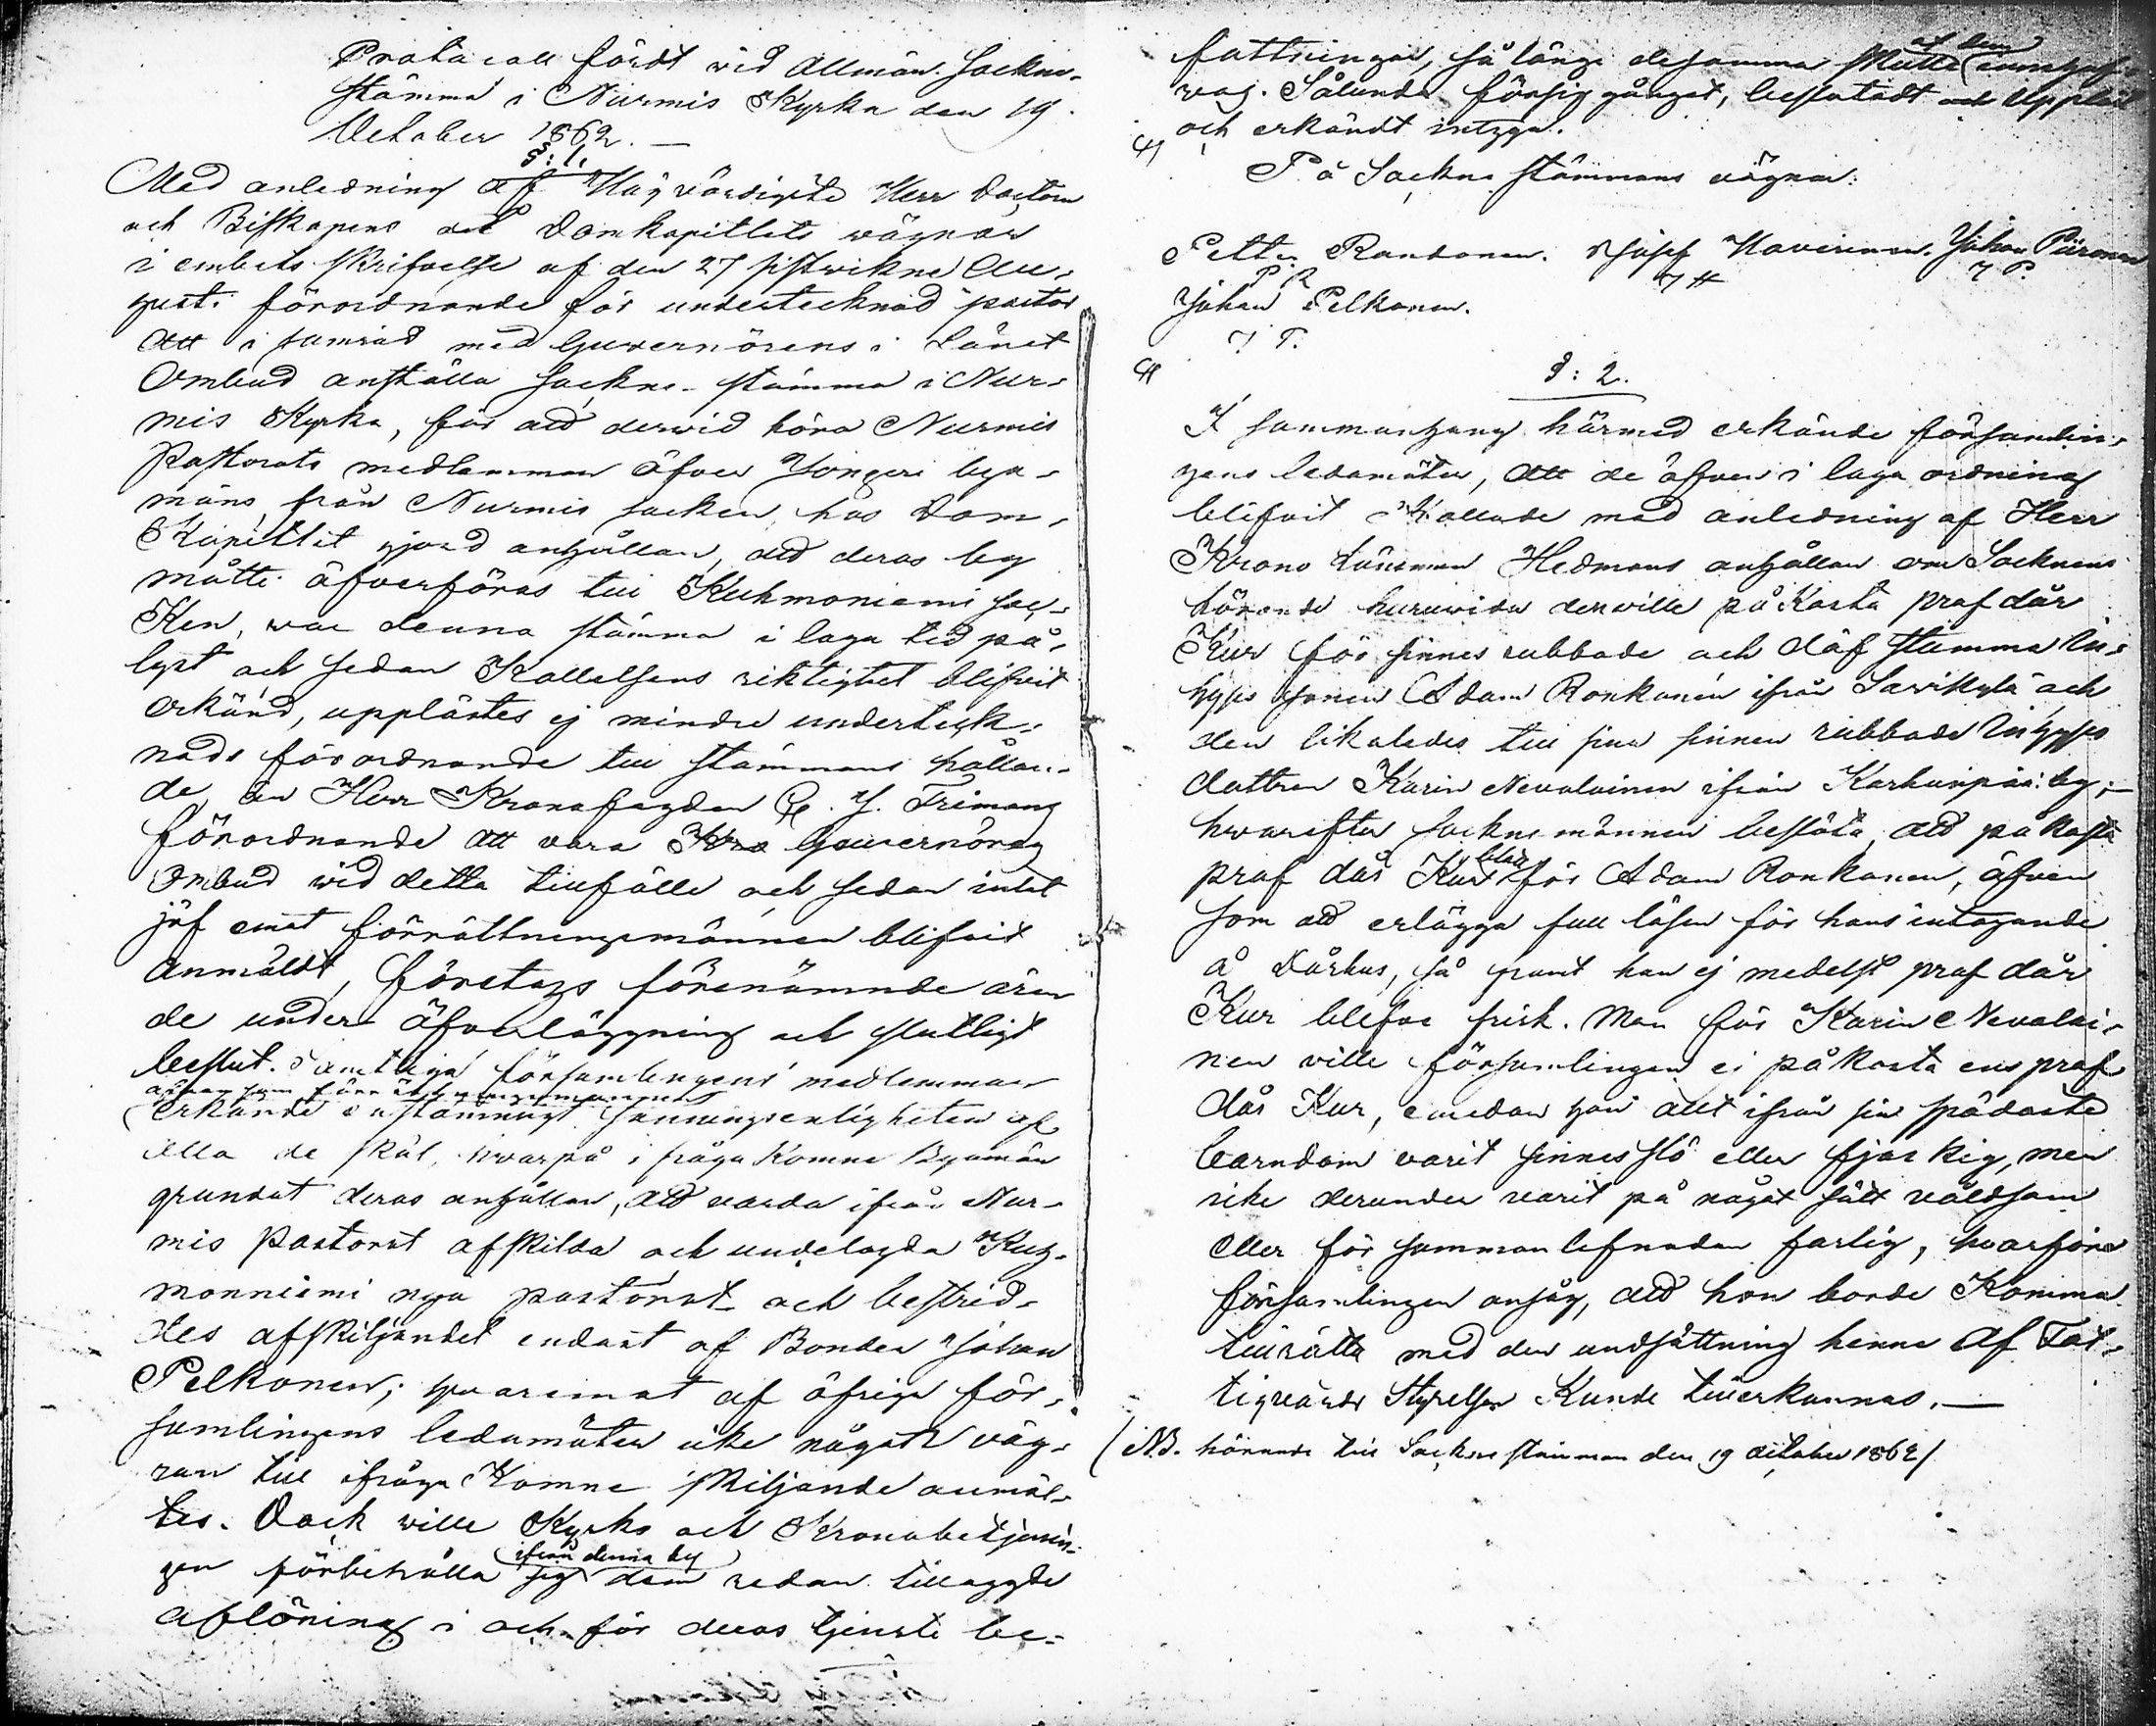 Protocoll fördt wid Allmän Sockne-
stämma i Nurmis Kyrka den 19
October 1862. —
§: 1.
Med anledning af Högvördigste Herr Doctorn
och Biskopens och Domkapitlets wägnar
i embets skrifvelse af den 27 sistwikne Au-
gusti förordnande för undertecknad pastor
att i samråd med Guvernörens i Länet
Ombud anställa Sockne-stämma i Nur-
mis Kyrka, för att derwid höra Nurmis
Pastorats medlemmar öfver Jongeri bya-
mäns från Nurmis socken, hos Dom-
Kapitlet gjord anhållan, att deras by
måtte öfverföras till Kuhmoniemi soc-
ken, war denna stämma i laga tid på-
lyst och sedan Kallelsens riktighet blifvit
erkänd, upplästes ej mindre underteck-
nads förordnande till stämmans hållan-
de, än Herr Kronofogden C. J. Trimang
förordnande att vara Guvernörens
Ombud wid detta tillfälle och sedan intet
jäf emot förrättningsmännen blifvit
anmäldt, företogs förenämnde ären
de under öfverläggning och slutligt
beslut. Samtliga församlingens medlemmar
äfven som förrättningsmännen
erkände enstämmigt sanningsenligheten af
alla de skäl, hvarpå i fråga Komne Byamän
grundat deras anhållan, att varda ifrån Nur-
mis Pastorat afskilda och underlagda Kuh-
monniemi nya pastorat och bestrid-
des afskiljandet endast af Bonden Johan
Pelkonen; hvaremot af öfriga för-
samlingens ledamöter icke något väg-
ran till ifråga Komne skiljande anmäl-
tes. Dock wille Kyrko och Kronobetjenin-
gen förbehålla sig ifrån denna by dem redan tillagde
aflöning i och för deras tjenste be-
fattningar, så länge desamma skulle af dem
wag. Sålunda försig gånget, beslutadt och Uppläst
och erkändt intyga.
På Sockne stämmans vägnar:
Petter Randonen. Josef Havirinen. Johan Piironen
P R J H J P.
Johan Pelkonen.
J. P.
§: 2.
I sammanhang härmed erkände församlin-
gens ledamöter, att de äfven i laga ordning
blifvit Kallade med anledning af Herr
Krono Länsman Hedmans anhållan om Socknens
hörande huruwida den wille på Kosta prof dår
Kur för sinnes rubbade och döf stumma In-
hyses sonen Adam Ronkanen ifrån Savikylä och
den likaledes till sina sinnen rubbade Inhyses
dottren Karin Nevalainen ifrån Karhunpää by; —
hwarefter socknemännen beslöto att på kosta
prof dår Kur för Adam Ronkanen, äfven
som att erlägga full lösen för hans intagande
å Dårhus, så framt han ej medelst prof dår
Kur blefve frisk. Men för Karin Nevalai-
nen ville församlingen ej påkosta ens prof
dår Kur, emedan hon allt ifrån sin spädaste
barndom varit sinnes slö eller fjaskig, men
icke derunder varit på något sätt våldsam
eller för samman lefnaden farlig, hvarföre
församlingen ansåg, att hon borde Komma
tillrätta med den undsättning henne af Fat-
tigvårds Styrelsen Kunde tillerkännas. —
(N.B. hörande till Sockne stämman den 19 october 1862)